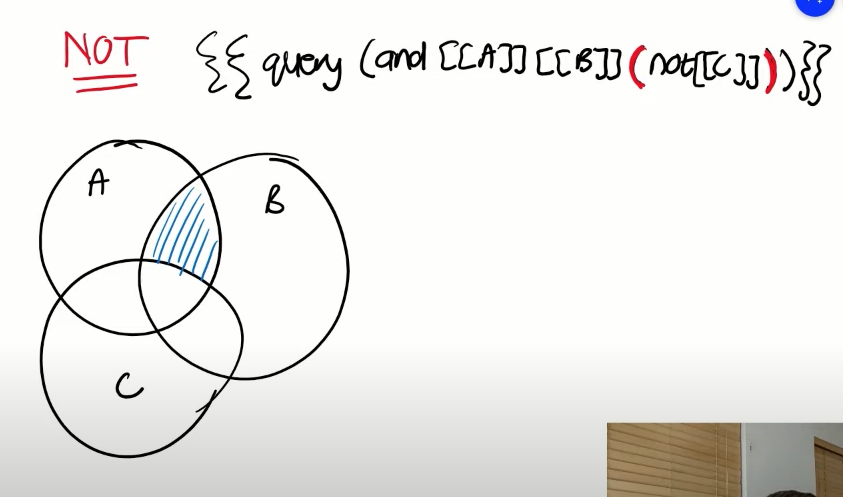 NOT {{ query (and [[A]] [[B]] (not[[C]])) }}
A
B
C